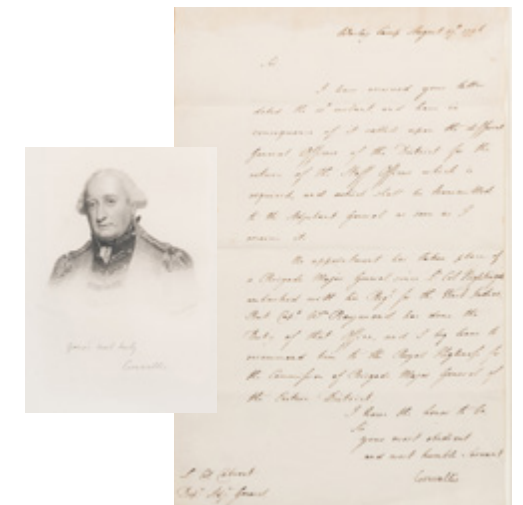 Warley Camp August 1796
Sir
I have received your letter
dated the 10th instant and have in
consequence of it called upon the different
General Officers of the District for the
return of the Staff Officers which is
required, and which shall be transmitted
to the Adjutant General as soon as I
receive it.
No appointment has taken place of
a Brigade Major General since Lt Col
embarked with his Regt for the West Indies
But Capt Wm Raymond has done the
Duty of that Office, and I beg leave to
recommend him to the Royal Highness for
the Commission of Brigade Major General of
the Eastern District.
I have the honor to be
Sir
your most obedient
and most humble Servant
Cornwallis
Lt Col Calvert
Depy Adjt General
Yours most truly
Cornwallis